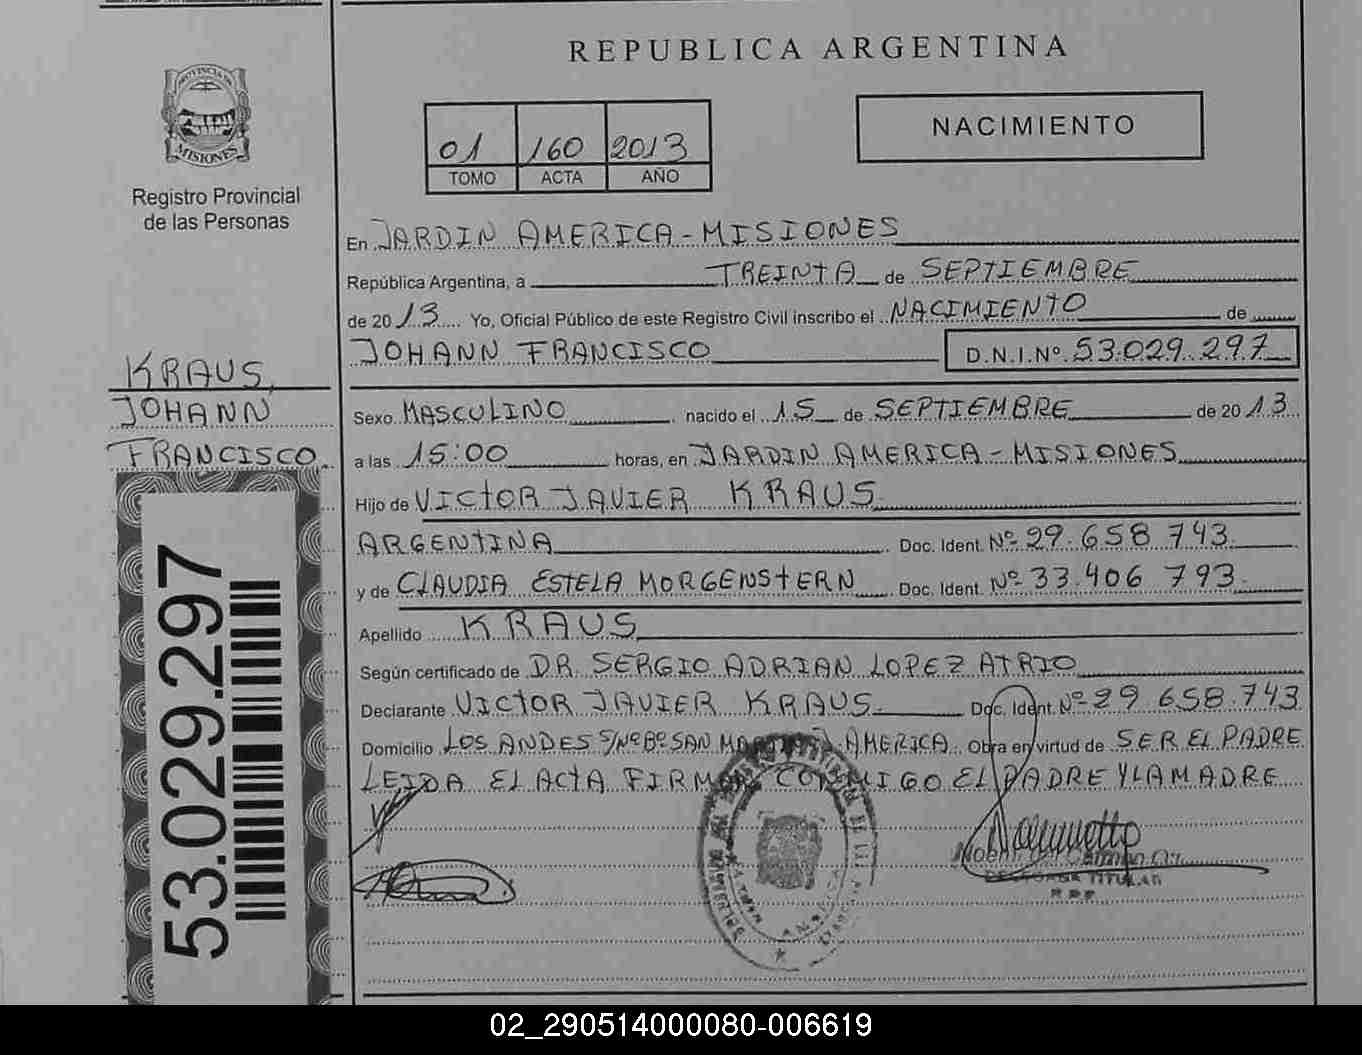 REPUBLICA ARGENTINA
PROVINCIA DE
MISIONES
Registro Provincial
de las Personas
01 160 2013
TOMO ACTA AÑO
NACIMIENTO
En JARDIN AMERICA - MISIONES
República Argentina, a TREINTA de SEPTIEMBRE
de 2013 Yo, Oficial Público de este Registro Civil inscribo el NACIMIENTO de
JOHANN FRANCISCO D.N.I.Nº 53.029.297
KRAUS,
JOHANN
FRANCISCO
Sexo MASCULINO nacido el 15 de SEPTIEMBRE de 2013
a las 15:00 horas, en JARDIN AMERICA - MISIONES
Hijo de VICTOR JAVIER KRAUS
ARGENTINA Doc. Ident. Nº 29.658.743
y de CLAUDIA ESTELA MORGENSTERN Doc. Ident. Nº 33.406.793
Apellido KRAUS
Según certificado de DR. SERGIO ADRIAN LOPEZ ATRIO
Declarante VICTOR JAVIER KRAUS Doc. Ident. Nº 29.658.743
Domicilio LOS ANDES S/Nº Bº SAN MARTIN J. AMERICA Obra en virtud de SER EL PADRE
LEIDA EL ACTA FIRMAN CONMIGO EL PADRE Y LA MADRE
53.029.297
TITULAR
02_290514000080-006619